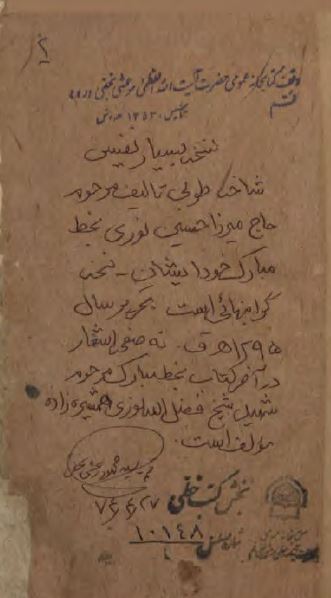 وقف کتابخانه عمومی حضرت آیت الله العظمی مرعشی نجفی
قم
نسخه بسیار نفیس
شاخه طوبی تالیف مرحوم
حاج میرزا حسین نوری بخط
مبارک خود ایشان - نسخه
گرانبهائی است تحریر سال
۱۲۹۵ ه ق. نه صفحه اشعار
در آخر کتاب بخط مبارک مرحوم
شهید شیخ فضل الله نوری همشیره زاده
مولف است.
سید محمود مرعشی نجفی
بخش کتب خطی
شماره
۱۰۱۴۸